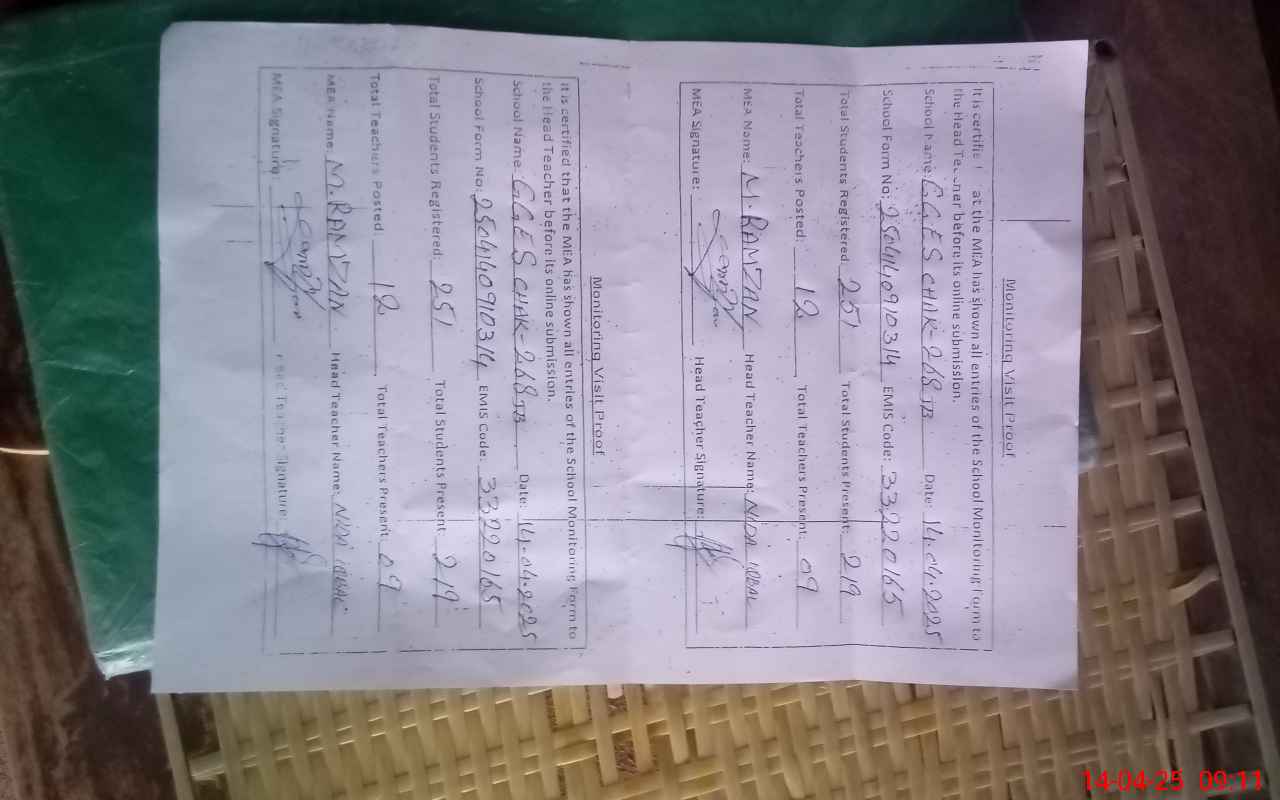 Monitoring Visit Proof
It is certified that the MEA has shown all entries of the School Monitoring Form to
the Head Teacher before its online submission.
School Name: GGES CHAK-268 JB Date: 14.04.2025
School Form No: 2504140910314 EMIS Code: 33220165
Total Students Registered: 251 Total Students Present: 219
Total Teachers Posted: 12 Total Teachers Present: 09
MEA Name: M.RAMZAN Head Teacher Name: NIDA IQBAL
MEA Signature: Head Teacher Signature:
Monitoring Visit Proof
It is certified that the MEA has shown all entries of the School Monitoring Form to
the Head Teacher before its online submission.
School Name: GGES CHAK-268 JB Date: 14.04.2025
School Form No: 2504140910314 EMIS Code: 33220165
Total Students Registered: 251 Total Students Present 219
Total Teachers Posted: 12 Total Teachers Present: 09
MEA Name: M.RAMZAN Head Teacher Name: NIDA IQBAL
MEA Signature: Head Teacher Signature:
14-04-25 09:11